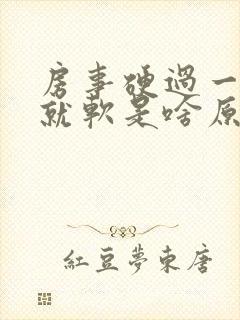 房事硬過一
就軟是啥原
紅豆夢東唐